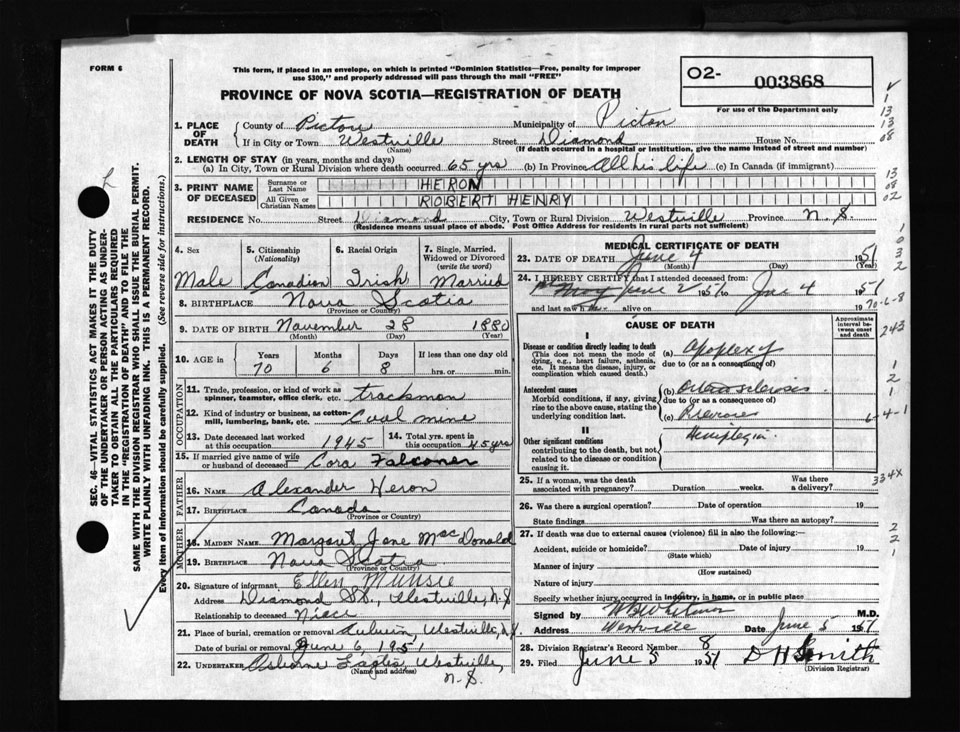 FORM 6
This form, if placed in an envelope, on which is printed "Dominion Statistics—Free, penalty for improper
use $300," and properly addressed will pass through the mail "FREE"
O2- 003868
For use of the Department only
PROVINCE OF NOVA SCOTIA—REGISTRATION OF DEATH
1. PLACE OF DEATH County of Pictou Municipality of Pictou
If in City or Town Westville (Name) Street Diamond House No.
(If death occurred in a hospital or institution, give the name instead of street and number)
2. LENGTH OF STAY (in years, months and days)
(a) In City, Town or Rural Division where death occurred 65 yrs (b) In Province All his life (c) In Canada (if immigrant)
3. PRINT NAME OF DECEASED Surname or Last Name HERON
All Given or Christian Names ROBERT HENRY
RESIDENCE No. Street Diamond City, Town or Rural Division Westville Province N.S.
(Residence means usual place of abode. Post Office Address for residents in rural parts not sufficient)
SEC. 46—VITAL STATISTICS ACT MAKES IT THE DUTY
OF THE UNDERTAKER OR PERSON ACTING AS UNDER-
TAKER TO OBTAIN ALL THE PARTICULARS REQUIRED
IN THE "REGISTRATION OF DEATH" AND TO FILE THE
SAME WITH THE DIVISION REGISTRAR WHO SHALL ISSUE THE BURIAL PERMIT.
WRITE PLAINLY WITH UNFADING INK. THIS IS A PERMANENT RECORD.
Every item of Information should be carefully supplied. (See reverse side for instructions.)
4. Sex Male
5. Citizenship (Nationality) Canadian
6. Racial Origin Irish
7. Single, Married, Widowed or Divorced (write the word) Married
8. BIRTHPLACE Nova Scotia
(Province or Country)
9. DATE OF BIRTH November 28 1880
(Month) (Day) (Year)
10. AGE in Years 70 Months 6 Days 8 If less than one day old hrs. or min.
OCCUPATION
11. Trade, profession, or kind of work as spinner, teamster, office clerk, etc. trackman
12. Kind of industry or business, as cotton-mill, lumbering, bank, etc. Coal mine
13. Date deceased last worked at this occupation 1945
14. Total yrs. spent in this occupation 45 yrs
15. If married give name of wife or husband of deceased Cora Falconer
FATHER
16. NAME Alexander Heron
17. BIRTHPLACE Canada
(Province or Country)
MOTHER
18. MAIDEN NAME Margaret Jane MacDonald
19. BIRTHPLACE Nova Scotia
(Province or Country)
20. Signature of informant Ellen Munsie
Address Diamond St., Westville, N.S
Relationship to deceased Niece
21. Place of burial, cremation or removal Westville, N.S.
Date of burial or removal June 6, 1951
22. UNDERTAKER Osborne Westville,
(Name and address) N.S.
MEDICAL CERTIFICATE OF DEATH
23. DATE OF DEATH June 4 1951
(Month) (Day) (Year)
24. I HEREBY CERTIFY that I attended deceased from
June 2 1951 to June 4 1951
and last saw h alive on 19
70-6-8
CAUSE OF DEATH
Approximate interval between onset and death
I
Disease or condition directly leading to death
(This does not mean the mode of dying, e.g., heart failure, asthenia, etc. It means the disease, injury, or complication which caused death.)
(a) Apoplexy
due to (or as a consequence of)
Antecedent causes
Morbid conditions, if any, giving rise to the above cause, stating the underlying condition last.
(b) Arteriosclerosis
due to (or as a consequence of)
(c)
II
Other significant conditions contributing to the death, but not related to the disease or condition causing it.
Hemiplegia
25. If a woman, was the death associated with pregnancy? Duration weeks. Was there a delivery?
26. Was there a surgical operation? Date of operation 19
State findings Was there an autopsy?
27. If death was due to external causes (violence) fill in also the following:—
Accident, suicide or homicide? Date of injury 19
(State which)
Manner of injury
(How sustained)
Nature of injury
Specify whether injury occurred in industry, in home, or in public place
Signed by M.D.
Address Westville Date June 5 1951
28. Division Registrar's Record Number 8
29. Filed June 5 1951 D H Smith
(Division Registrar)
1
13
13
08
13
08
02
1
0
3
2
243
1
2
1
6-4-1
334X
2
2
1